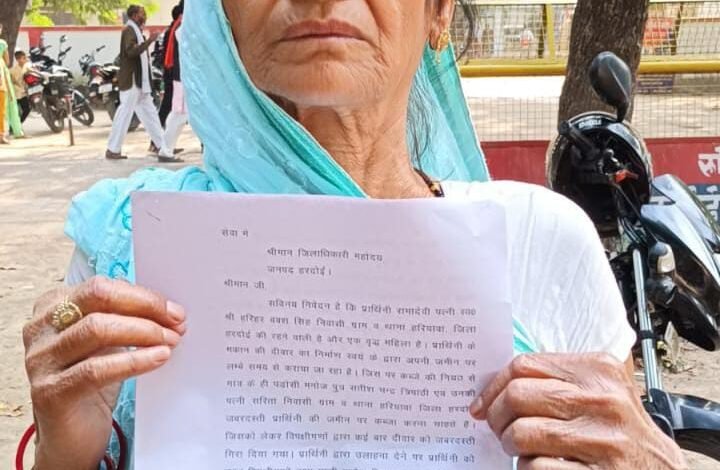 सेवा में
श्रीमान जिलाधिकारी महोदय
जनपद हरदोई।
श्रीमान जी,
सविनय निवेदन है कि प्रार्थिनी रामादेवी पत्नी स्व0
श्री हरिहर बक्श सिंह निवासी ग्राम व थाना हरियावा, जिला
हरदोई की रहने वाली है और एक वृद्ध महिला है। प्रार्थिनी के
मकान की दीवार का निर्माण स्वयं के द्वारा अपनी जमीन पर
लम्बे समय से कराया जा रहा है। जिस पर कब्जे की नियत से
गांव के ही पड़ोसी मनोज पुत्र सतीश चन्द्र त्रिपाठी एवं उनकी
पत्नी सरिता निवासी ग्राम व थाना हरियावा जिला हरदोई
जबरदस्ती प्रार्थिनी की जमीन पर कब्जा करना चाहते हैं।
जिसको लेकर विपक्षीगणों द्वारा कई बार दीवार को जबरदस्ती
गिरा दिया गया। प्रार्थिनी द्वारा उलाहना देने पर प्रार्थिनी को